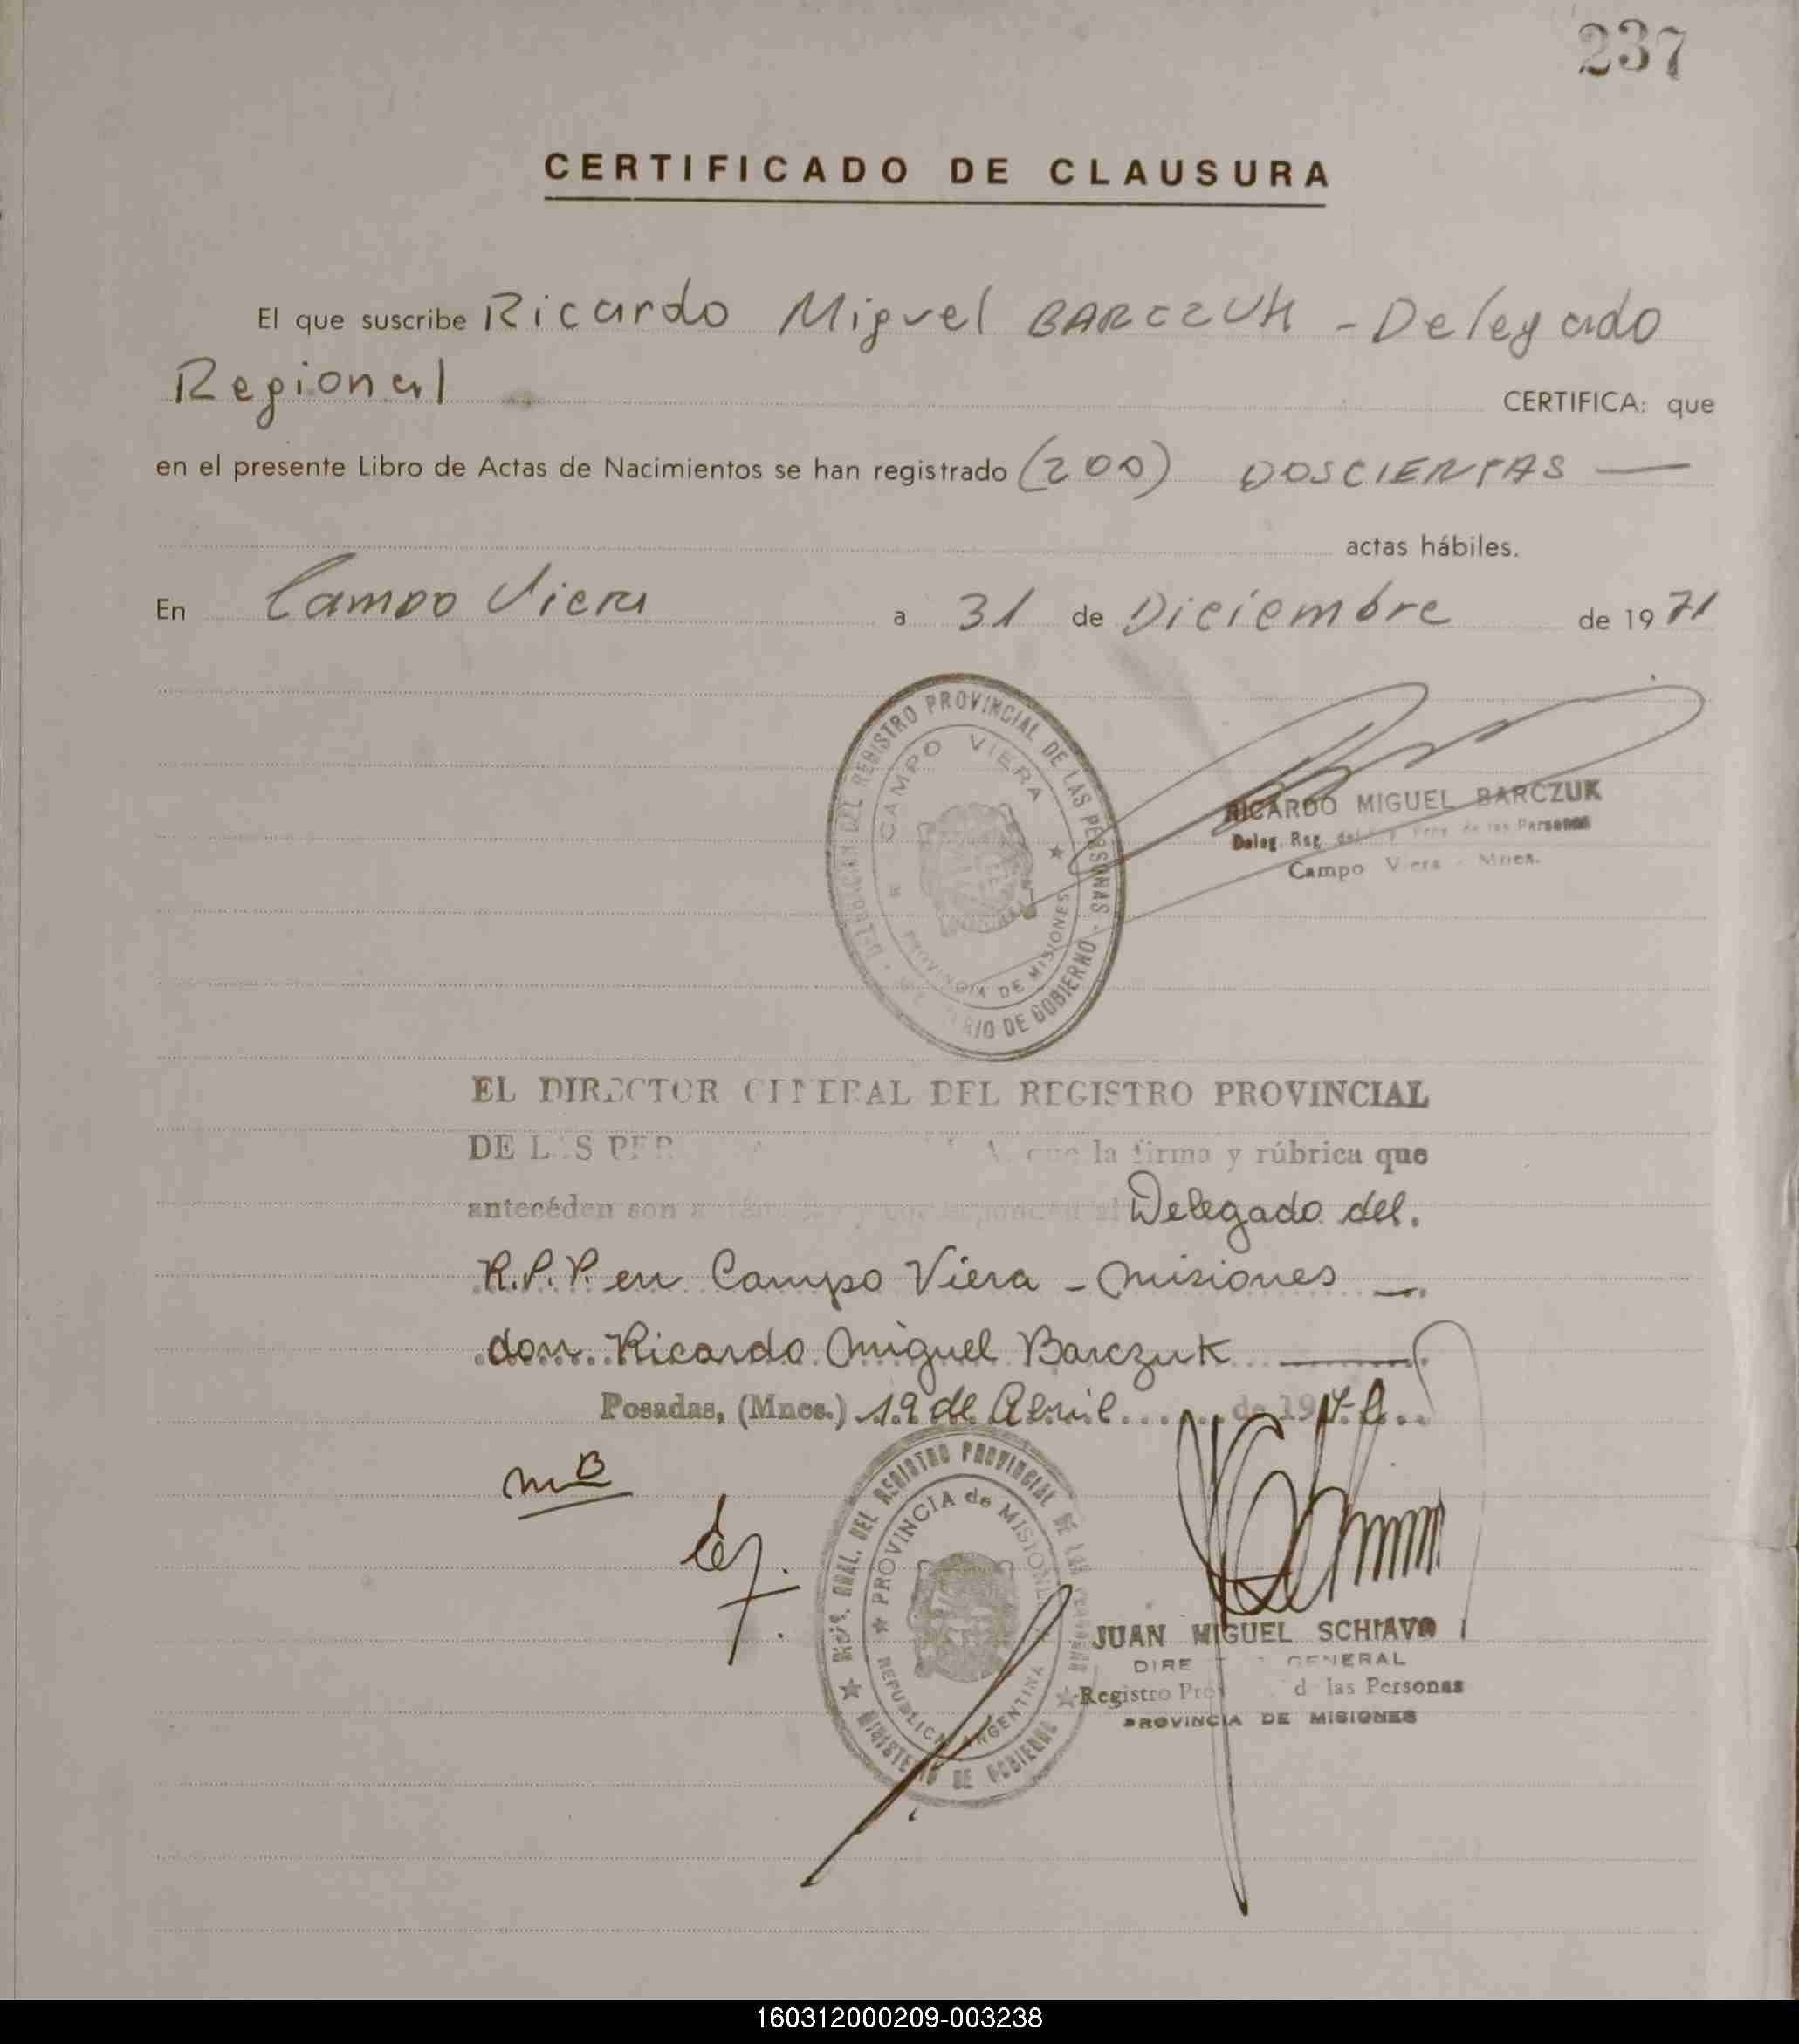 237
CERTIFICADO DE CLAUSURA
El que suscribe Ricardo Miguel BARCZUK - Delegado
Regional CERTIFICA: que
en el presente Libro de Actas de Nacimientos se han registrado (200) DOSCIENTAS —
actas hábiles.
En Campo Viera a 31 de Diciembre de 1971
DELEGACION DEL REGISTRO PROVINCIAL DE LAS PERSONAS - RIO DE GOBIERNO
CAMPO VIERA
PROVINCIA DE MISIONES
RICARDO MIGUEL BARCZUK
Deleg. Reg. de las Personas
Campo Viera - Mnes.
EL DIRECTOR GENERAL DEL REGISTRO PROVINCIAL
DE LAS PER que la firma y rúbrica que
antecéden son Delegado del.
R.P.P. en Campo Viera - Misiones —.
don Ricardo Miguel Barczuk —
Posadas, (Mnes.) 19 de Abril de 197
MB
DEL REGISTRO PROVINCIAL DE LAS PERSONAS
MINISTERIO DE GOBIERNO
PROVINCIA de MISIONES
REPUBLICA ARGENTINA
JUAN MIGUEL SCHIAVO
DIRE GENERAL
Registro Pro d las Personas
PROVINCIA DE MISIONES
160312000209-003238